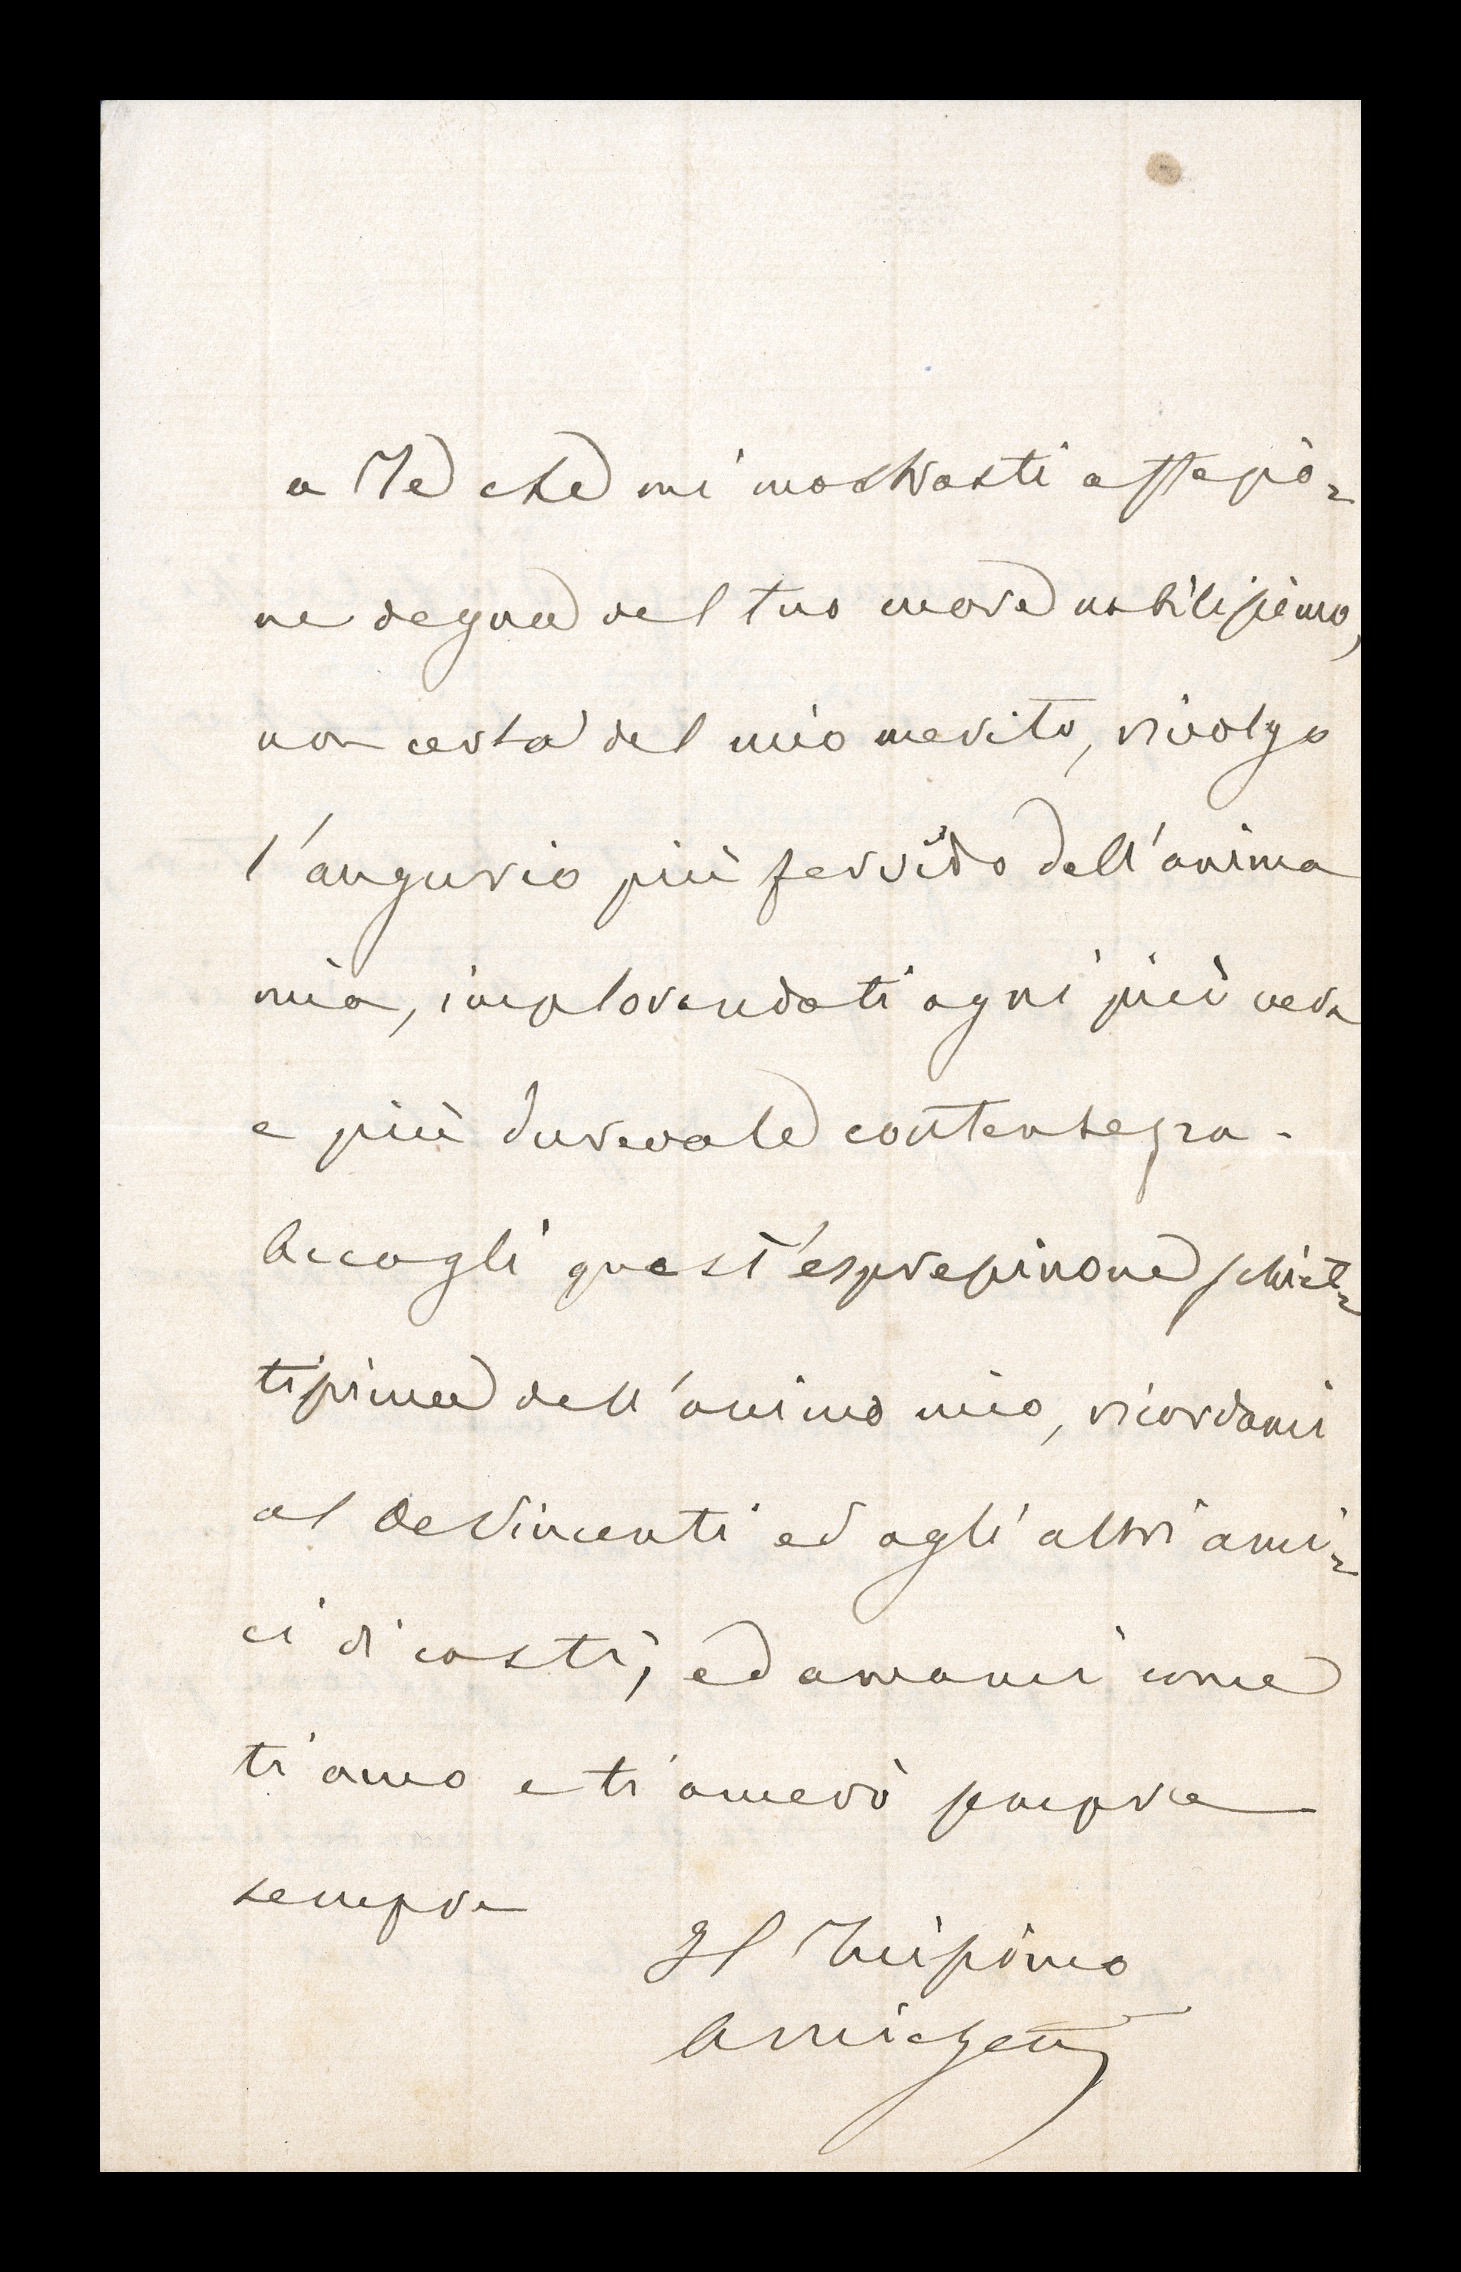 a Te che mi mostrasti affezio=
ne degna del tuo cuore nobilissimo,
non certo del mio merito, rivolgo
l'augurio più fervido dell'anima
mia, implorandoti ogni più vera
e più durevole contentezza.
Accogli quest'espressione schiet=
tissima dell'animo mio, ricordami
al DeVincenti ed agli altri ami=
ci di costì, ed amami come
ti amo e ti amerò sempre
sempre
Il Tuissimo